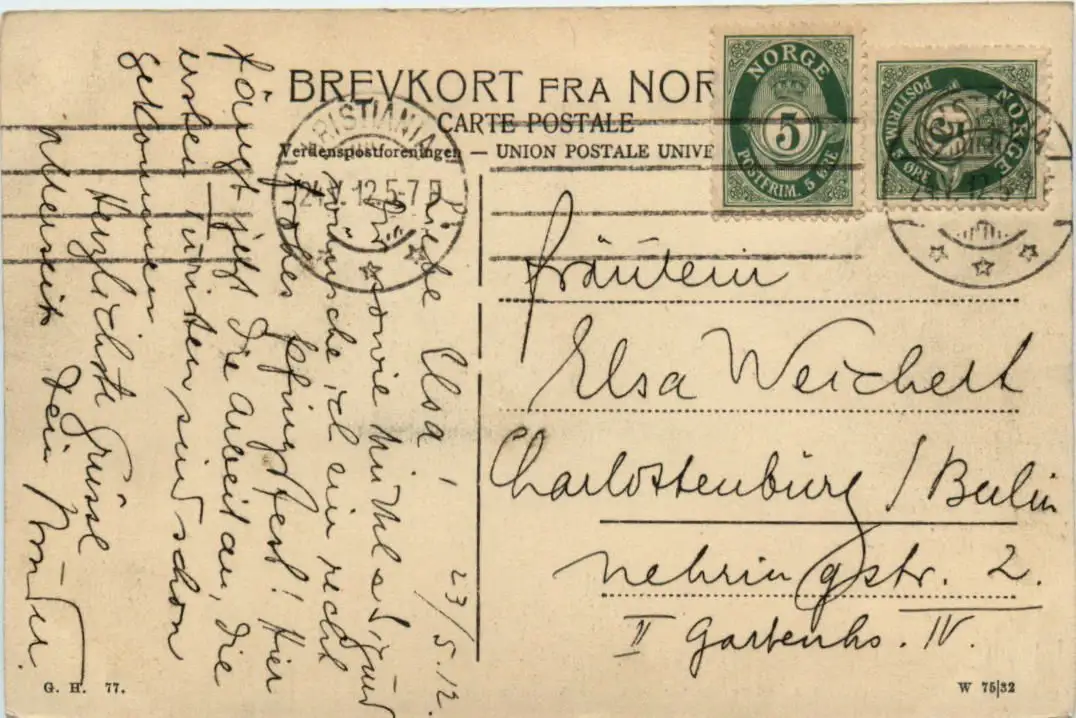 BREVKORT FRA NOR
CARTE POSTALE
Verdenspostforeningen — UNION POSTALE UNIVE
NORGE
5
POSTFRIM. 5 ØRE
NORGE
5
POSTFRIM. 5 ØRE
KRISTIANIA
24.V.12.5-7
24.V.12.5-7
23/5.12.
Liebe Elsa,
Dir sowie
wünsche ich ein recht
frohes Pfingstfest! Hier
fängt jetzt die Arbeit an, die
ersten Turisten sind schon
gekommen
Herzlichste Grüsse
allerseits Dein
Fräulein
Elsa Weichert
Charlottenburg / Berlin
Nehringstr. 2.
II Gartenhs. IV.
G. H. 77.
W 75|32